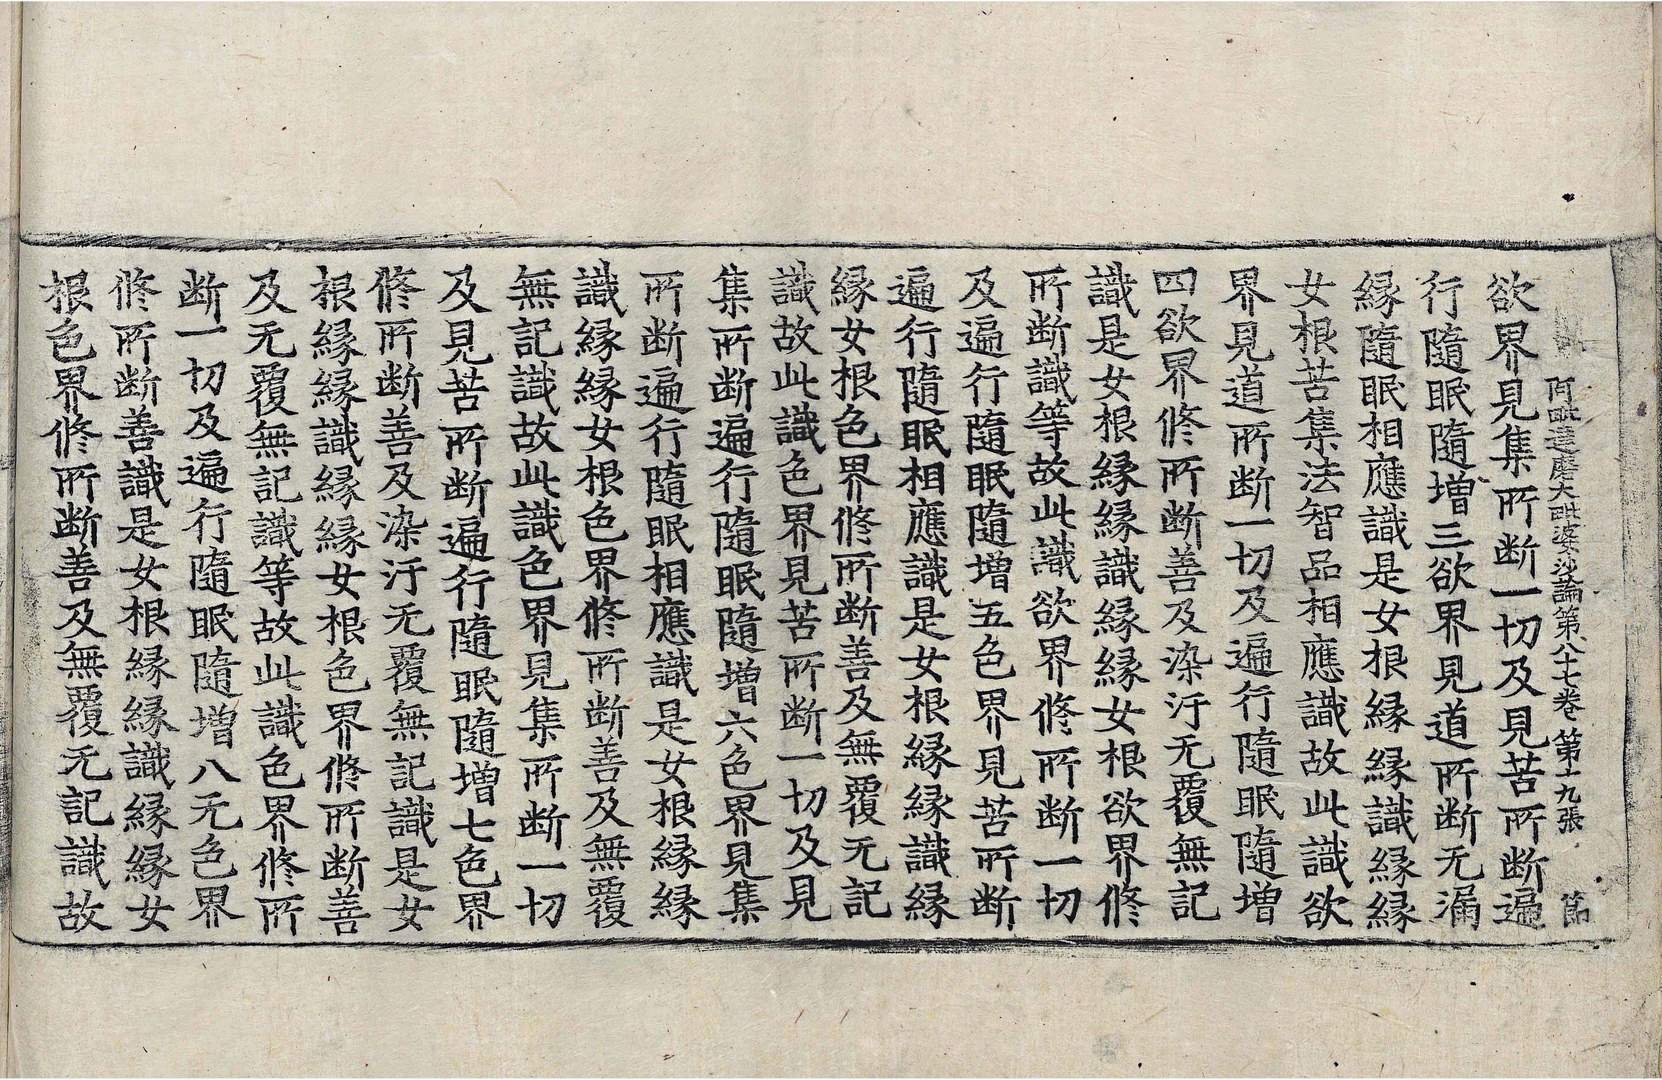 阿毗達磨大毗婆沙論第八十七卷 第十九張 節
欲界見集所断一切及見苦所断遍
行隨眠隨增三欲界見道所断无漏
緣隨眠相應識是女根緣緣識緣緣
女根苦集法智品相應識故此識欲
界見道所断一切及遍行隨眠隨增
四欲界修所断善及染汙无覆無記
識是女根緣緣識緣緣女根欲界修
所断識等故此識欲界修所断一切
及遍行隨眠隨增五色界見苦所断
遍行隨眠相應識是女根緣緣識緣
緣女根色界修所断善及無覆无記
識故此識色界見苦所断一切及見
集所断遍行隨眠隨增六色界見集
所断遍行隨眠相應識是女根緣緣
識緣緣女根色界修所断善及無覆
無記識故此識色界見集所断一切
及見苦所断遍行隨眠隨增七色界
修所断善及染汙无覆無記識是女
根緣緣識緣緣女根色界修所断善
及无覆無記識等故此識色界修所
断一切及遍行隨眠隨增八无色界
修所断善識是女根緣緣識緣緣女
根色界修所断善及無覆无記識故